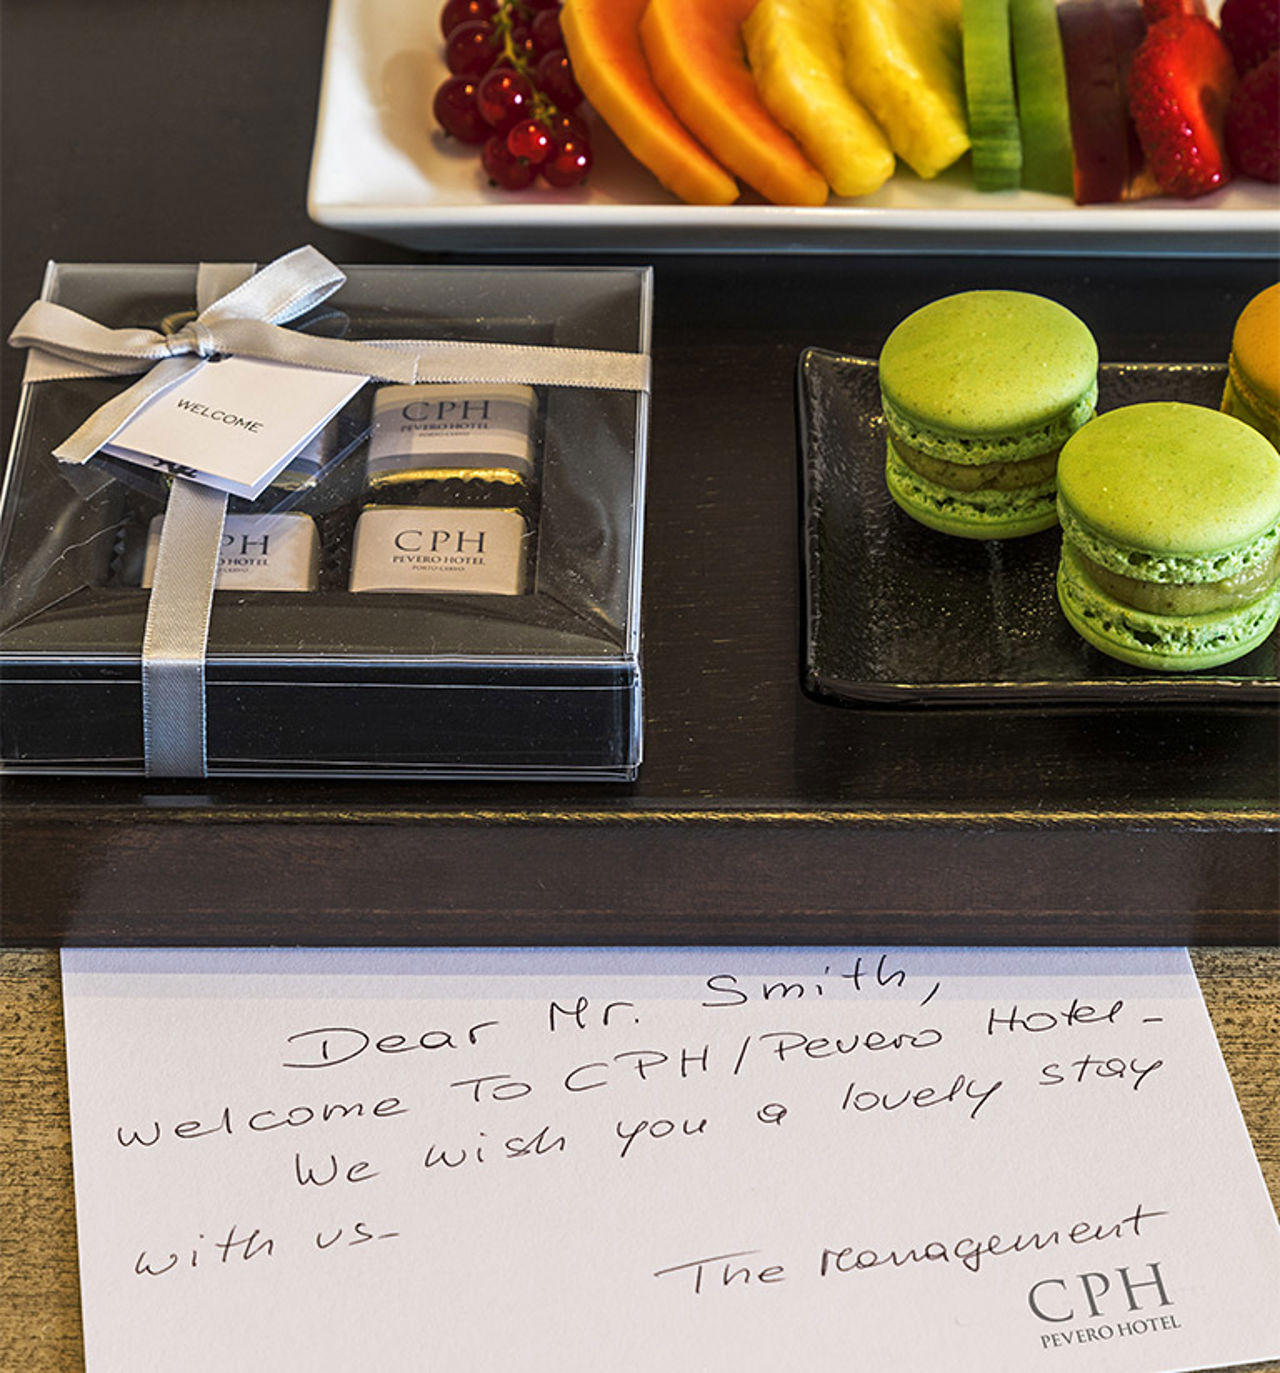 WELCOME
CPH
PEVERO HOTEL
PORTO CERVO
PH
HOTEL
CERVO
CPH
PEVERO HOTEL
PORTO CERVO
Dear Mr. Smith,
welcome To CPH/Pevero Hotel-
We wish you a lovely stay
with us-
The Management
CPH
PEVERO HOTEL